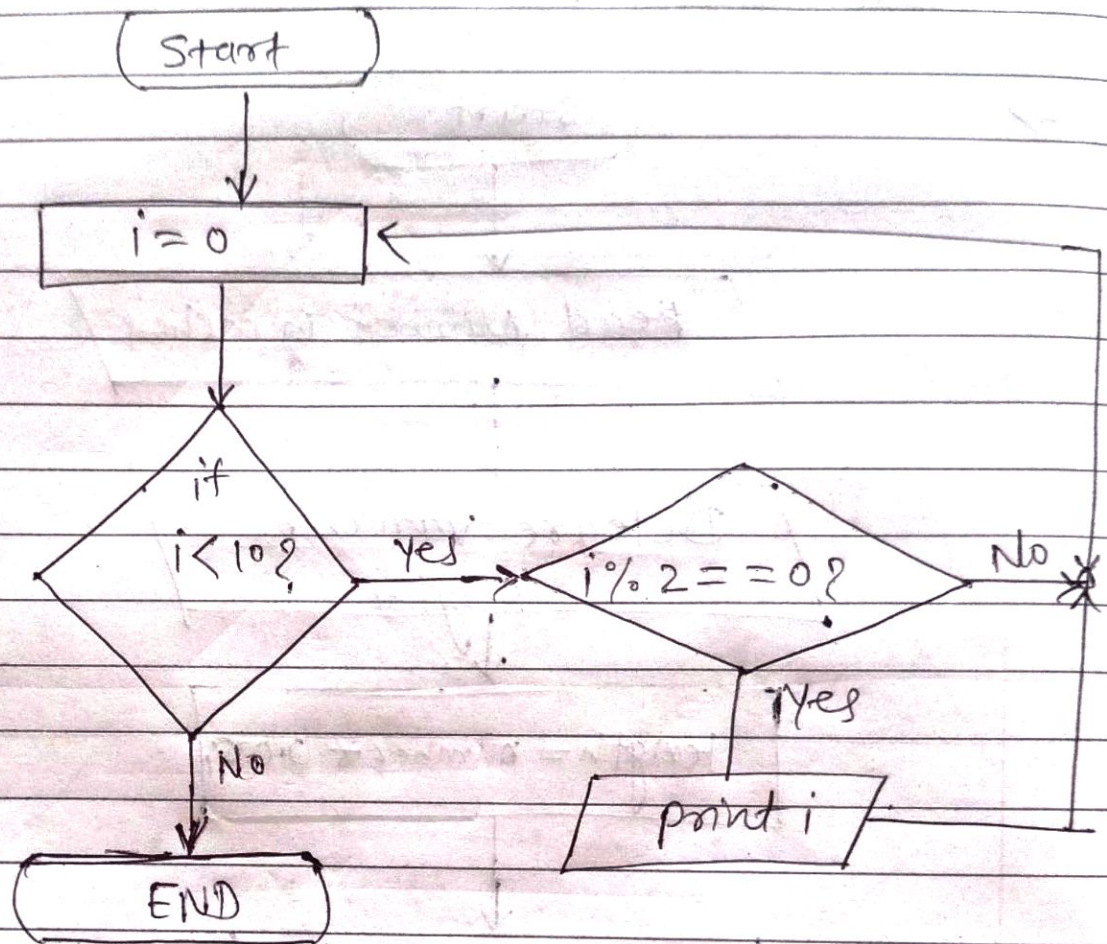 Start
i = 0
if
i < 10?
yes
i % 2 = = 0?
No
Yes
No
print i
END